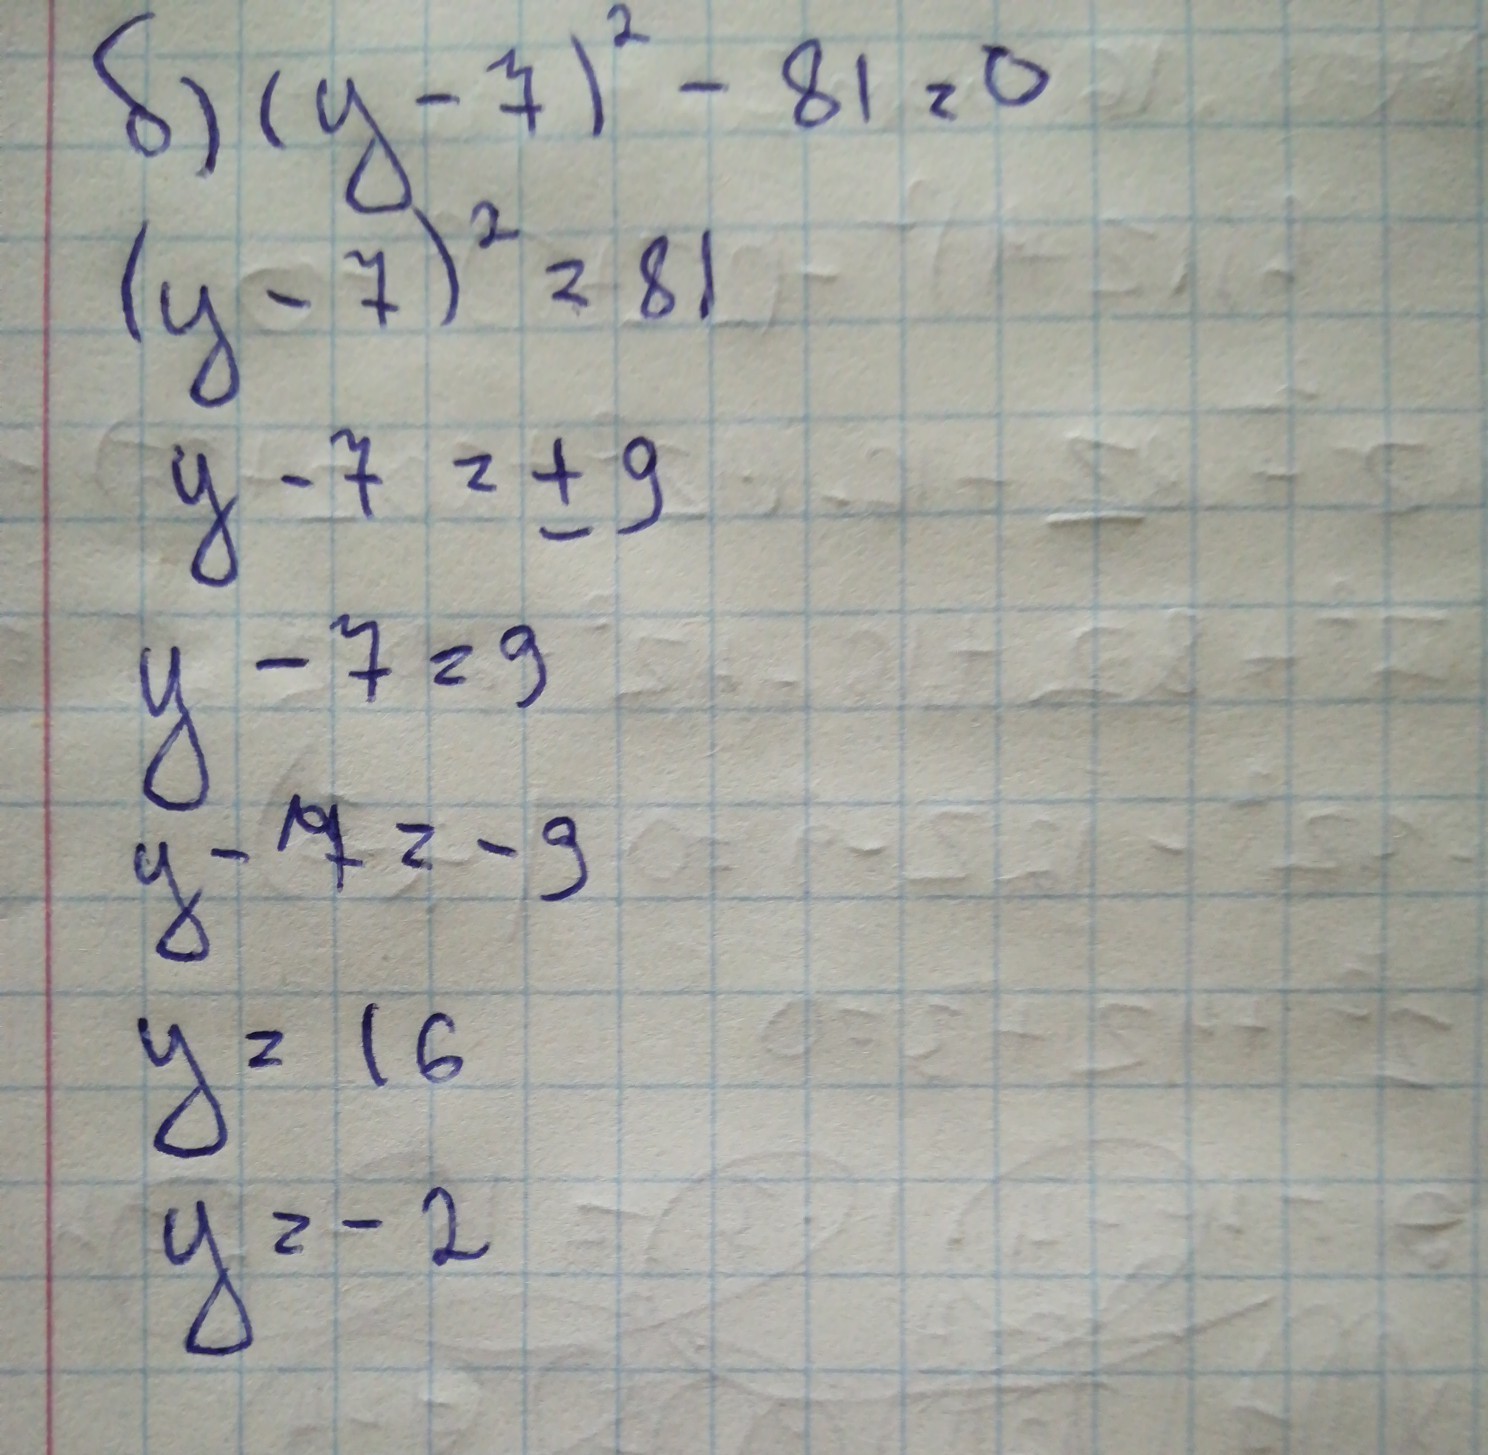 б) (y - 7)² - 81 = 0
(y - 7)² = 81
y - 7 = ± 9
y - 7 = 9
y - 7 = - 9
y = 16
y = - 2